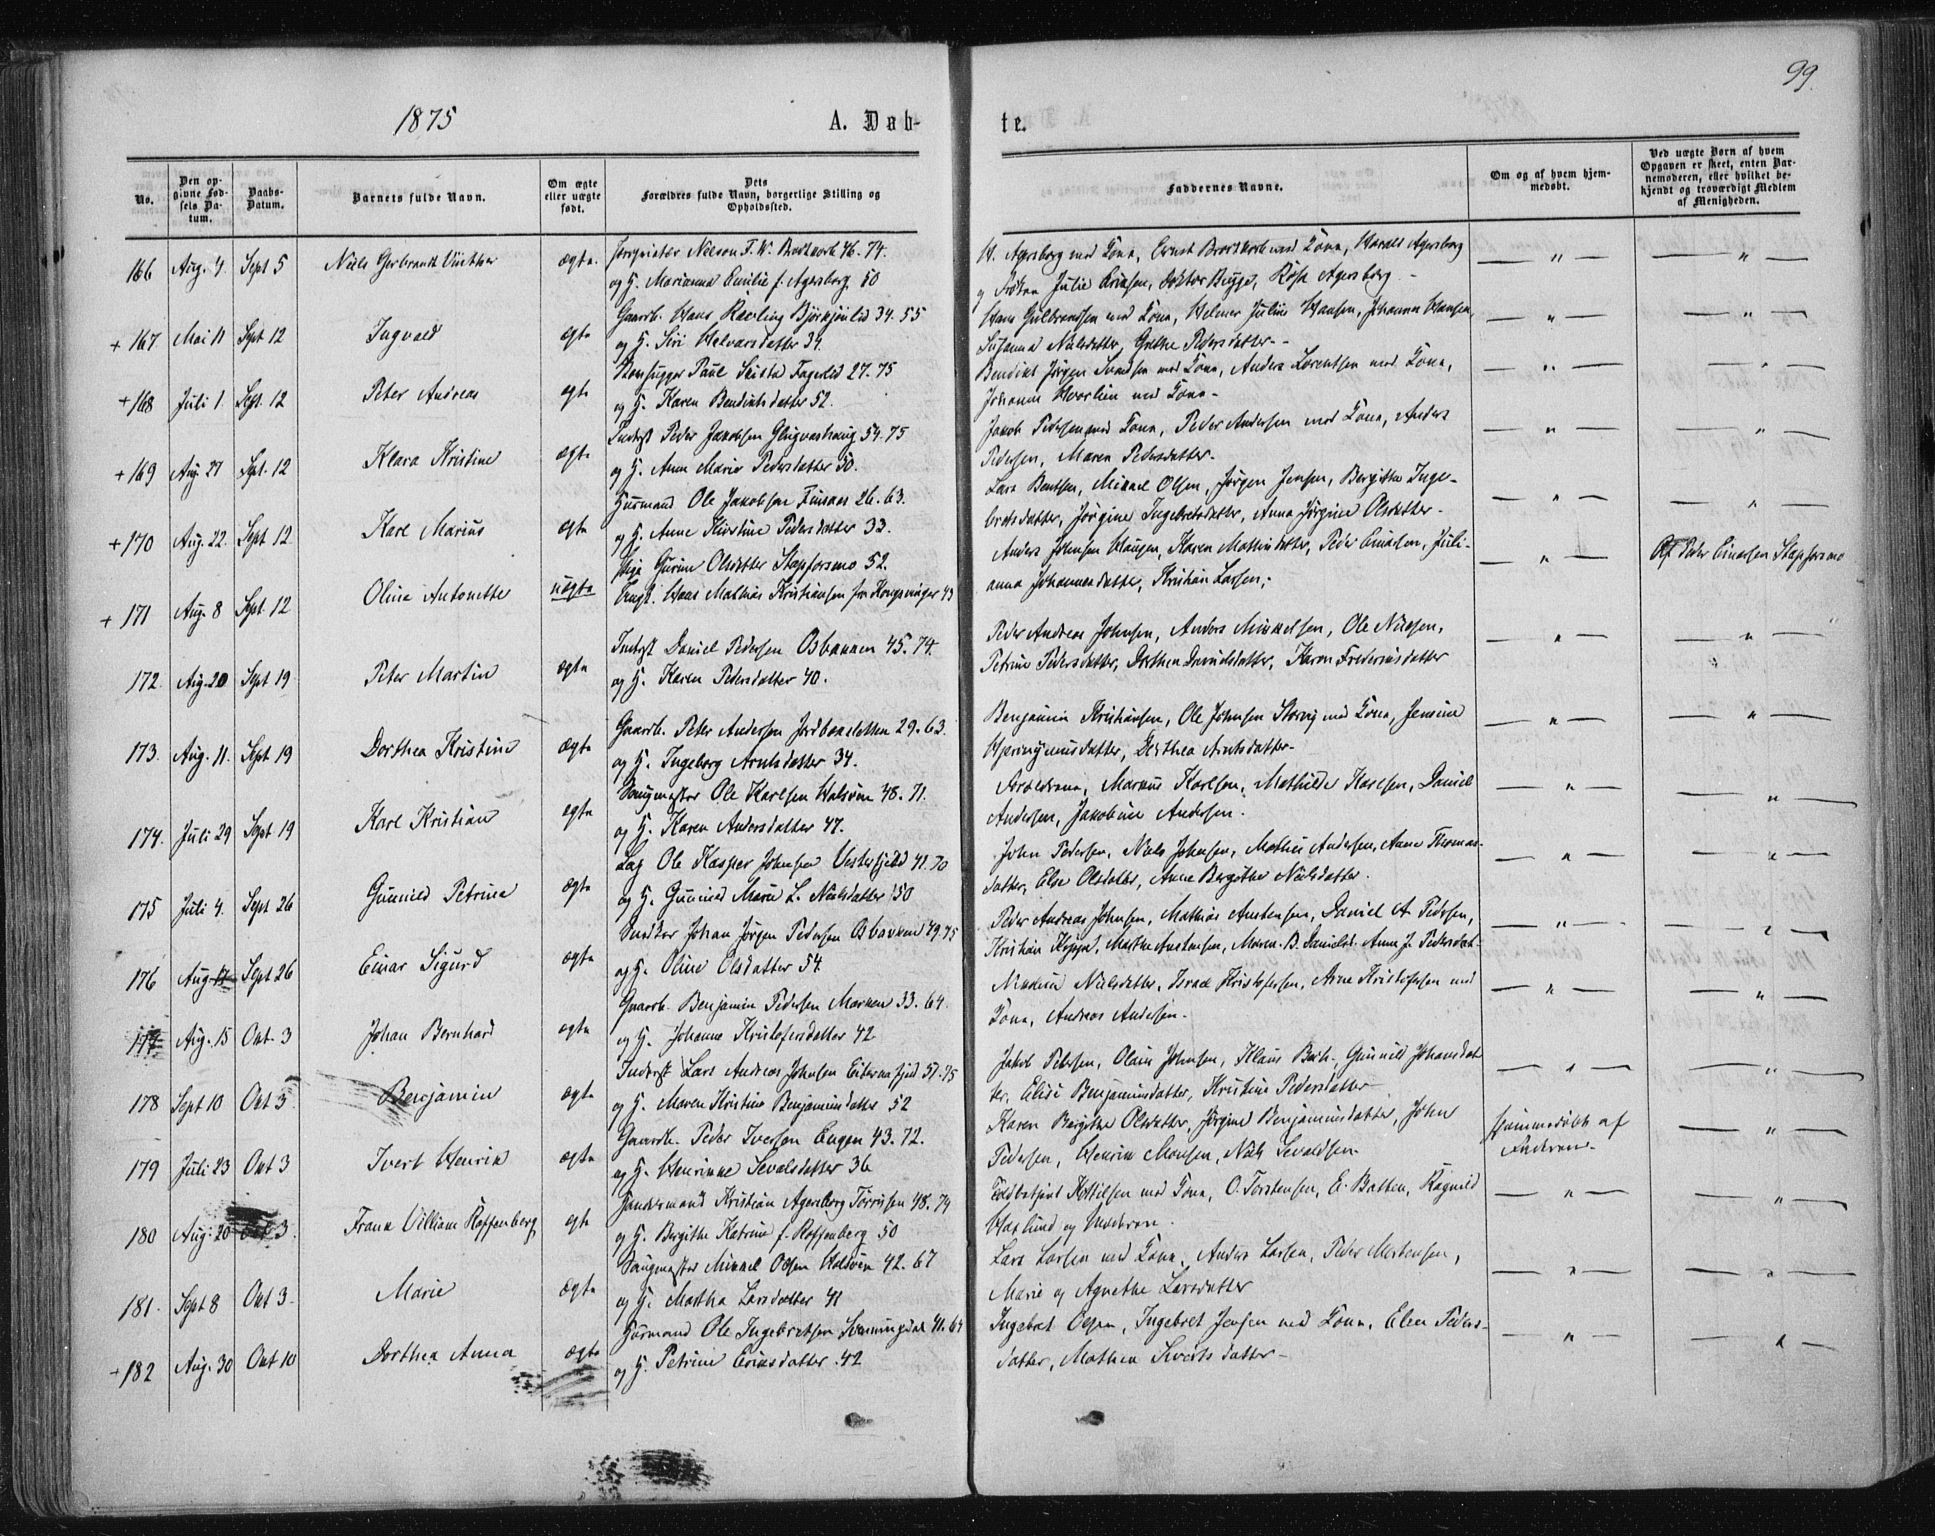 99.
1875
A. Døb-
te.
No.
Den op-
givne Fød-
sels Da-
tum.
Daabs-
Datum.
Barnets fulde Navn.
Om ægte
eller uægte
født.
Dets
Forældres fulde Navn, borgerlige Stilling og
Opholdssted.
Faddernes Navne.
Om og af hvem hjem-
medøbt.
Ved uægte Børn af hvem
Opgaven er skeet, enten Bar-
nemoderen, eller hvilket be-
kjendt og troværdigt Medlem
af Menigheden.
166 Aug. 4. Sept 5 Niels Gerbrandt Vinther ægte.
Nelson F. W. Brodtkorb 46. 74.
og H. Marianna Emilie f. Agersborg. 50
H. Agersborg med Kona, Ernst Brodtkorb med Kona, Harald Agersborg
og Julie Doktor Bugge, Rosa Agersborg -
+ 167. Mai 11 Sept 12 Ingvald ægte
Gaardb. Hans Bjørkjønlid 34. 55
og H. Siri Halvarsdatter 34.
Hans Gulbrandsen med Kona, Helmer Julius Hansen, Johanna Hansen,
Susanna Nielsdatter, Grethe Pedersdatter -
+ 168 Juli 1. Sept. 12 Peter Andreas egte
Paul Fagerlid 27. 75
og H. Karen Bendiktsdatter 52.
Bendikt Jørgen Svendsen med Kona, Anders Lorentsen med Kona,
Johannes med Kona -
+ 169 Aug. 27 Spt. 12 Klara Kristine ægte
Inderst Peder Jakobsen 54. 75
og H. Anne Marie Pedersdatter 50.
Jakob Pedersen med Kona, Peder Andersen med Kona, Anders
Pedersen, Maren Pedersdatter -
+ 170 Aug. 22. Sept 12 Karl Marius ægte
Husmand Ole Jakobsen 26. 63.
og H. Anne Kirstine Pedersdatter 33.
Lars Bentsen, Mikael Olsen, Jørgen Jensen, Bergitte Inge-
bretsdatter, Jørgine Ingebretsdatter, Anna Jørgine Olsdatter -
+ 171 Aug. 8 Sept. 12 Olina Antonette uægte
Pige Gurine Olsdatter Stapforsmo 52.
Ungk. Hans Mathias Kristiansen fra Kongsvinger 43
Anders Johnsen Haugen, Karen Pedersdatter, Peder Einarsen, Juli-
anna Johannesdatter, Kristian Larsen,
Af Peder Einarsen Stapforsmo
172. Aug. 20 Sept 19 Peter Martin ægte
Inderst Daniel Pedersen Osbakken 45. 74.
og H. Karen Pedersdatter 40.
Peder Andreas Johnsen, Anders Mikkelsen, Ole Nilsen,
Petrine Pedersdatter, Dorthea Danielsdatter, Karen Frederiksdatter
173. Aug. 11. Sept 19 Dorthea Kristine ægte
Gaardb. Peter Andersen 29. 63.
og H. Ingeborg Arntsdatter 34.
Benjamin Kristiansen, Ole Johnsen Storvig med Kona, Jensine
Hieronymusdatter, Dorthea Arntsdatter -
174. Juli 29 Sept 19 Karl Kristian egte
Ole Karlsen Halsøen 48. 71.
og H. Karen Andersdatter 47.
Forældrene, Markus Karlsen, Mathilde Karlsen, Daniel
Andersen, Jakobine Andersen.
175 Juli 4. Sept 26 Gunnild Petrine ægte
Ole Kasper Johnsen Vesterfjeld 41. 70
og H. Gunnild Marie L. Nielsdatter 50
John Pedersen, Niels Johnsen, Mathis Andersen, Anne Thomas-
datter, Else Olsdatter, Anne Bergithe Nielsdatter.
176 Aug 17 Sept 26 Einar Sigurd ægte
Snedker Johan Jørgen Pedersen Osbakken 49. 75
og H. Oline Olsdatter 54
Peder Andreas Johnsen, Mathias Austensen, Daniel A. Pedersen,
Kristian Marthe Austensen, Maren B. Danielsd. Anne J. Pedersdat-
177 Aug. 15 Okt. 3 Johan Bernhard ægte
Gaardb. Benjamin Pedersen Marken 33. 64.
og H. Johanna Kristofersdatter 42
Nielsdatter, Israel Kristofersen, Arne Kristofersen med
Kona, Andreas Andersen.
178 Sept 10 Okt 3 Benjamin ægte
Inderst Lars Andreas Johnsen 51. 75
og H. Maren Kristine Benjaminsdatter 52
Jakob Petersen, Olaus Johnsen, Klaus Bech, Gunnild Johansdat
ter, Elise Benjaminsdatter, Kristine Pedersdatter
179 Juli 23 Okt 3 Ivert Henrik ægte
Gaardb. Peder Iversen Engen 43. 72.
og H. Henrikke Sevaldsdatter 36
Karen Bergithe Olsdatter, Jørgine Benjaminsdatter, John
Pedersen, Henrik Monsen, Niels Sevaldsen.
Hjemmedøbt af
Faderen.
180 Aug. 20 Okt 3. Frank William Koffenberg egte
Handelsmand Kristian Agersborg Torrissen 48. 74
og H. Bergithe Katrine f. Koffenberg 50
med Kona, O. Torstensen, E. Batten, Ragnild
og Moderen.
181. Sept 8 Okt 3. Marie ægte
Mikael Olsen Halsøen 42. 67
og H. Martha Larsdatter 41
Lars Larsen med Kona, Anders Larsen, Peder Mortensen,
Marie og Agnethe Larsdatter
+ 182 Aug. 30 Okt 10 Dorthea Anna ægte
Husmand Ole Ingebretsen Svenningdal 41. 64
og H. Petrine Eriksdatter. 42
Ingebret Olsen, Ingebret Jensen med Kona, Elen Peders-
datter, Mathea Sivertsdatter -